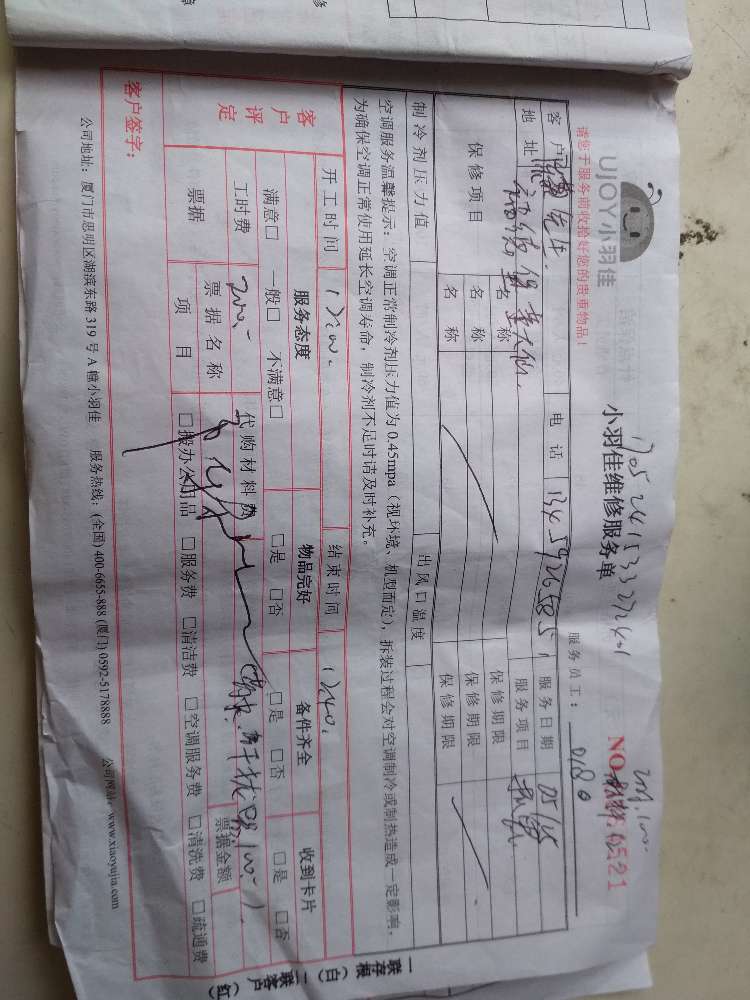 UJOY小羽佳
请您于服务前收拾好您的贵重物品!
小羽佳维修服务单
服务员工:
NO 0521
客户 先生 电话 13459265851 服务日期 05/15
地址 服务项目
保修项目 名称 保修期限
名称 保修期限
名称 保修期限
制冷剂压力值 出风口温度
空调服务温馨提示:空调正常制冷剂压力值为0.45mpa(视环境、机型而定),拆装过程会对空调制冷或制热造成一定影响,
为确保空调正常使用延长空调寿命,制冷剂不足时请及时补充。
开工时间 结束时间
客户评定 服务态度 物品完好 备件齐全 收到卡片
满意□ 一般□ 不满意□ □是 □否 □是 □否 □是 □否
工时费 200.- 代购材料费
票据 票据名称 票据金额
项目 □搬办公用品 □服务费 □清洁费 □空调服务费 □清洗费 □疏通费
客户签字:
公司地址:厦门市思明区湖滨东路319号A幢小羽佳 服务热线:(全国)400-6655-888(厦门)0592-5178888 公司网站:www.xiaoyujia.com
一联存根(白)二联客户(红)